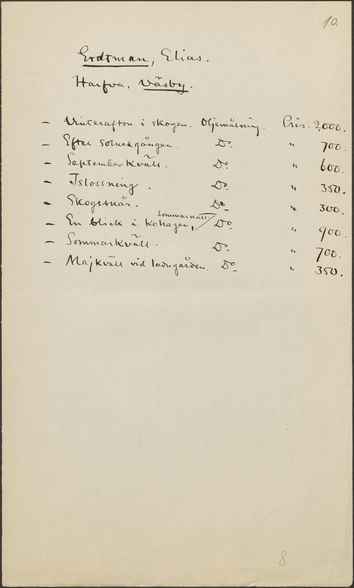 10.
Erdtman, Elias.
Harfva, Väsby.
– Vinterafton i skogen. Oljemålning. Pris. 2,000.
– Efter solnedgången. Do. " 700.
– Septemberkväll. Do. " 600.
– Islossning. Do. " 350.
– Skogssnår. Do. " 300.
– En blick i kohagen, sommarnatt Do. " 900.
– Sommarkväll. Do. " 700.
– Majkväll vid ladugården. Do. " 350.
8